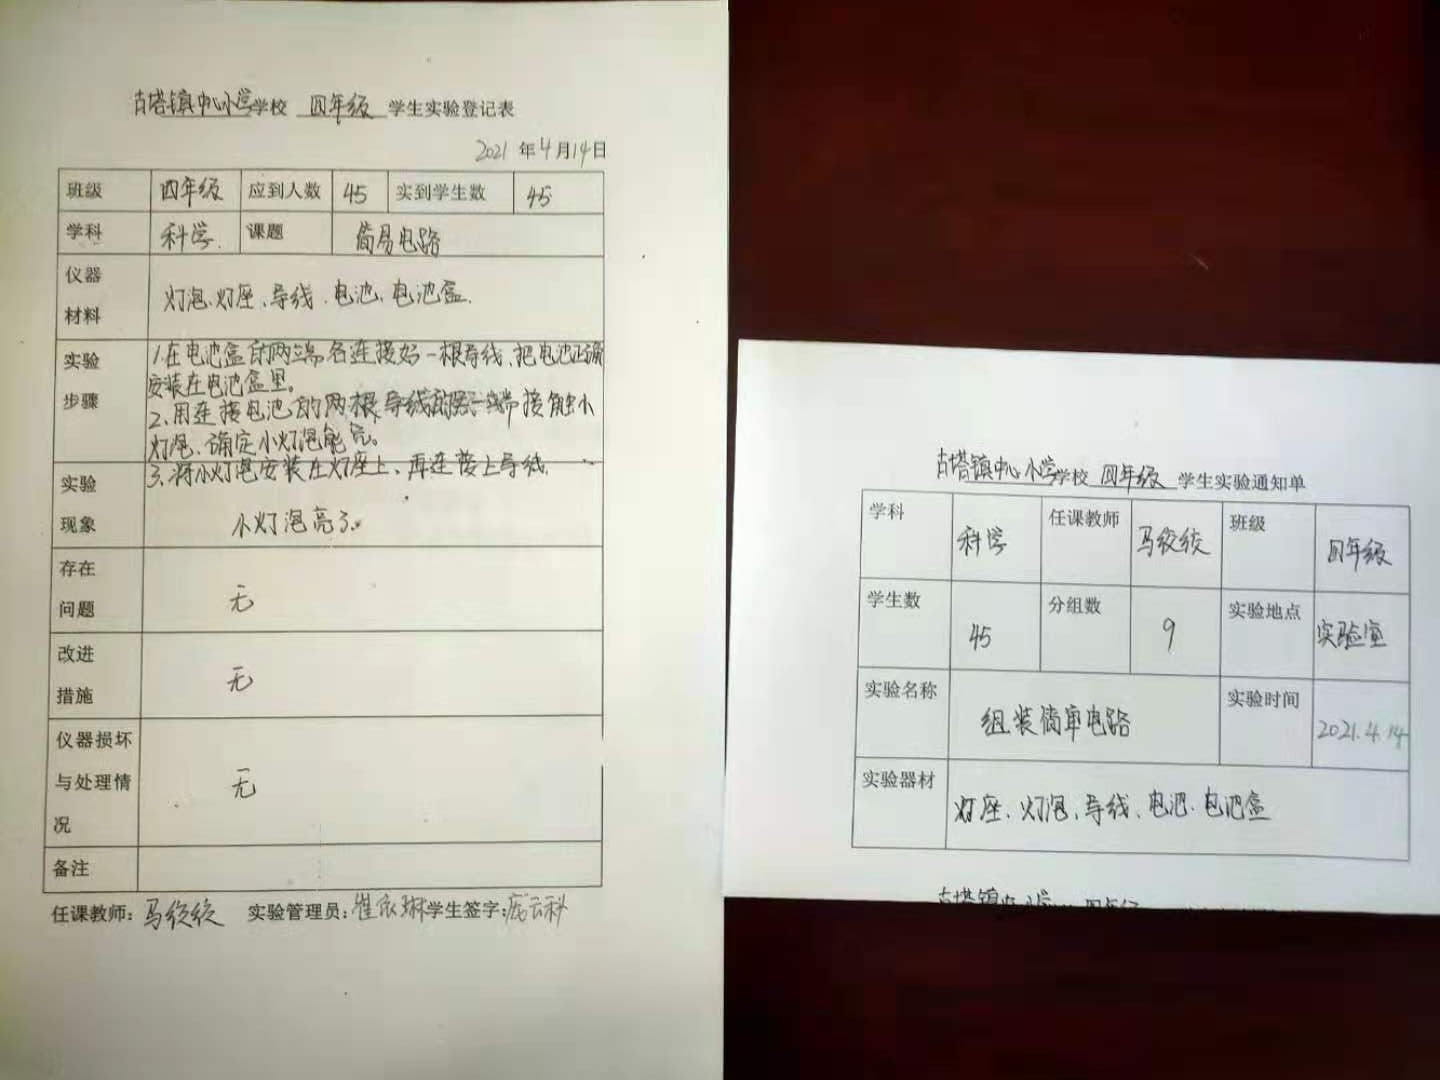 古塔镇中心小学学校 四年级 学生实验登记表
2021 年 4 月 14 日
班级 四年级 应到人数 45 实到学生数 45
学科 科学 课题 简易电路
仪器材料 灯泡、灯座、导线、电池、电池盒.
实验步骤 1.在电池盒的两端各连接好一根导线、把电池正确
安装在电池盒里。
2、用连接电池的两根导线的另一端接触小
灯泡、确定小灯泡能亮。
3、将小灯泡安装在灯座上、再连接上导线.
实验现象 小灯泡亮了。
存在问题 无
改进措施 无
仪器损坏与处理情况 无
备注
任课教师：马绞绞 实验管理员： 学生签字：
古塔镇中心小学学校 四年级 学生实验通知单
学科 科学 任课教师 马绞绞 班级 四年级
学生数 45 分组数 9 实验地点 实验室
实验名称 组装简单电路 实验时间 2021.4.14
实验器材 灯座、灯泡、导线、电池、电池盒
古塔镇中心小学 四年级